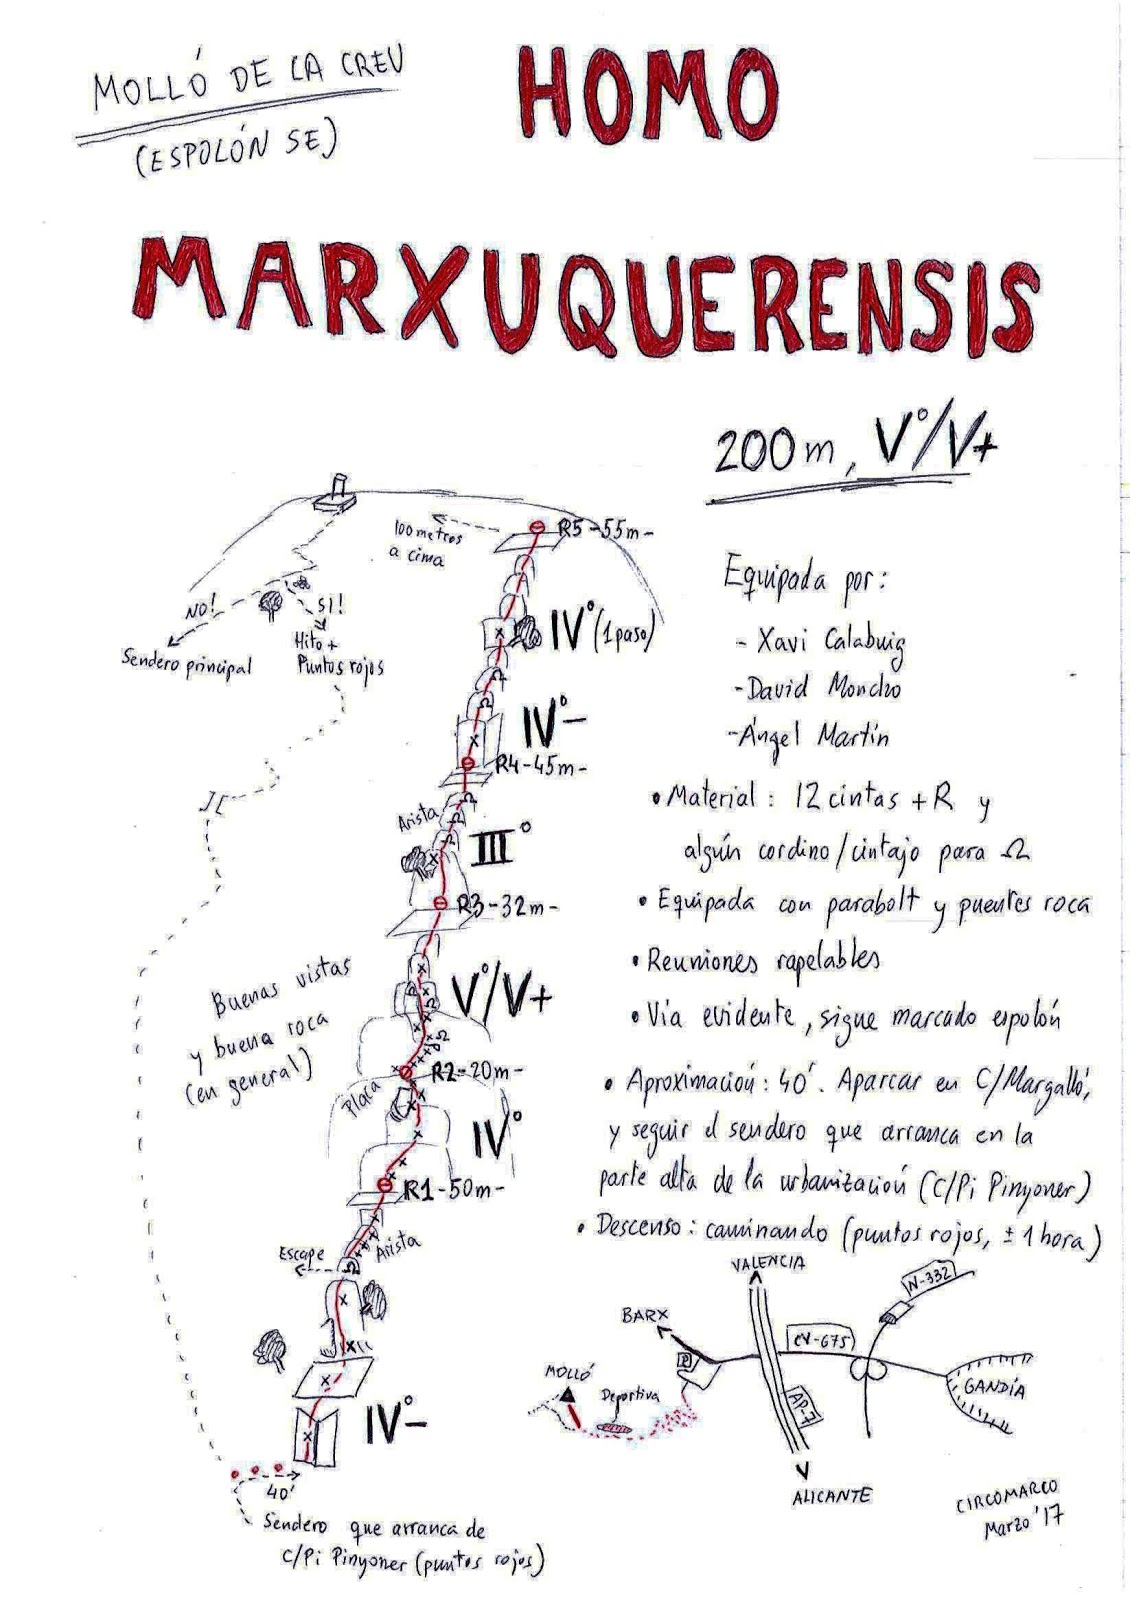 MOLLÓ DE LA CREU
(ESPOLÓN SE)
HOMO
MARXUQUERENSIS
200m, Vº/V+
100 metros
a cima
R5-55m-
NO!
SI!
Sendero principal
Hito +
Puntos rojos
IVº (1 paso)
IVº-
R4-45m-
Arista
IIIº
R3-32m-
Buenas vistas
y buena roca
(en general)
Vº/V+
R2-20m-
Placa
IVº
R1-50m-
Escape
Arista
IVº-
40'
Sendero que arranca de
C/Pi Pinyoner (puntos rojos)
Equipada por:
- Xavi Calabuig
- David Moncho
- Ángel Martín
• Material: 12 cintas + R y
algún cordino/cintajo para Ω
• Equipada con parabolt y puentes roca
• Reuniones rapelables
• Vía evidente, sigue marcado espolón
• Aproximación: 40'. Aparcar en C/Margalló,
y seguir el sendero que arranca en la
parte alta de la urbanización (C/Pi Pinyoner)
• Descenso: caminando (puntos rojos, ± 1 hora)
VALENCIA
N-332
BARX
CV-675
P
MOLLÓ
Deportiva
AP-7
GANDÍA
ALICANTE
CIRCOMARCO
Marzo '17